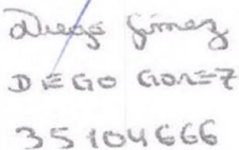 Diego Gómez
DIEGO GOMEZ
35104666